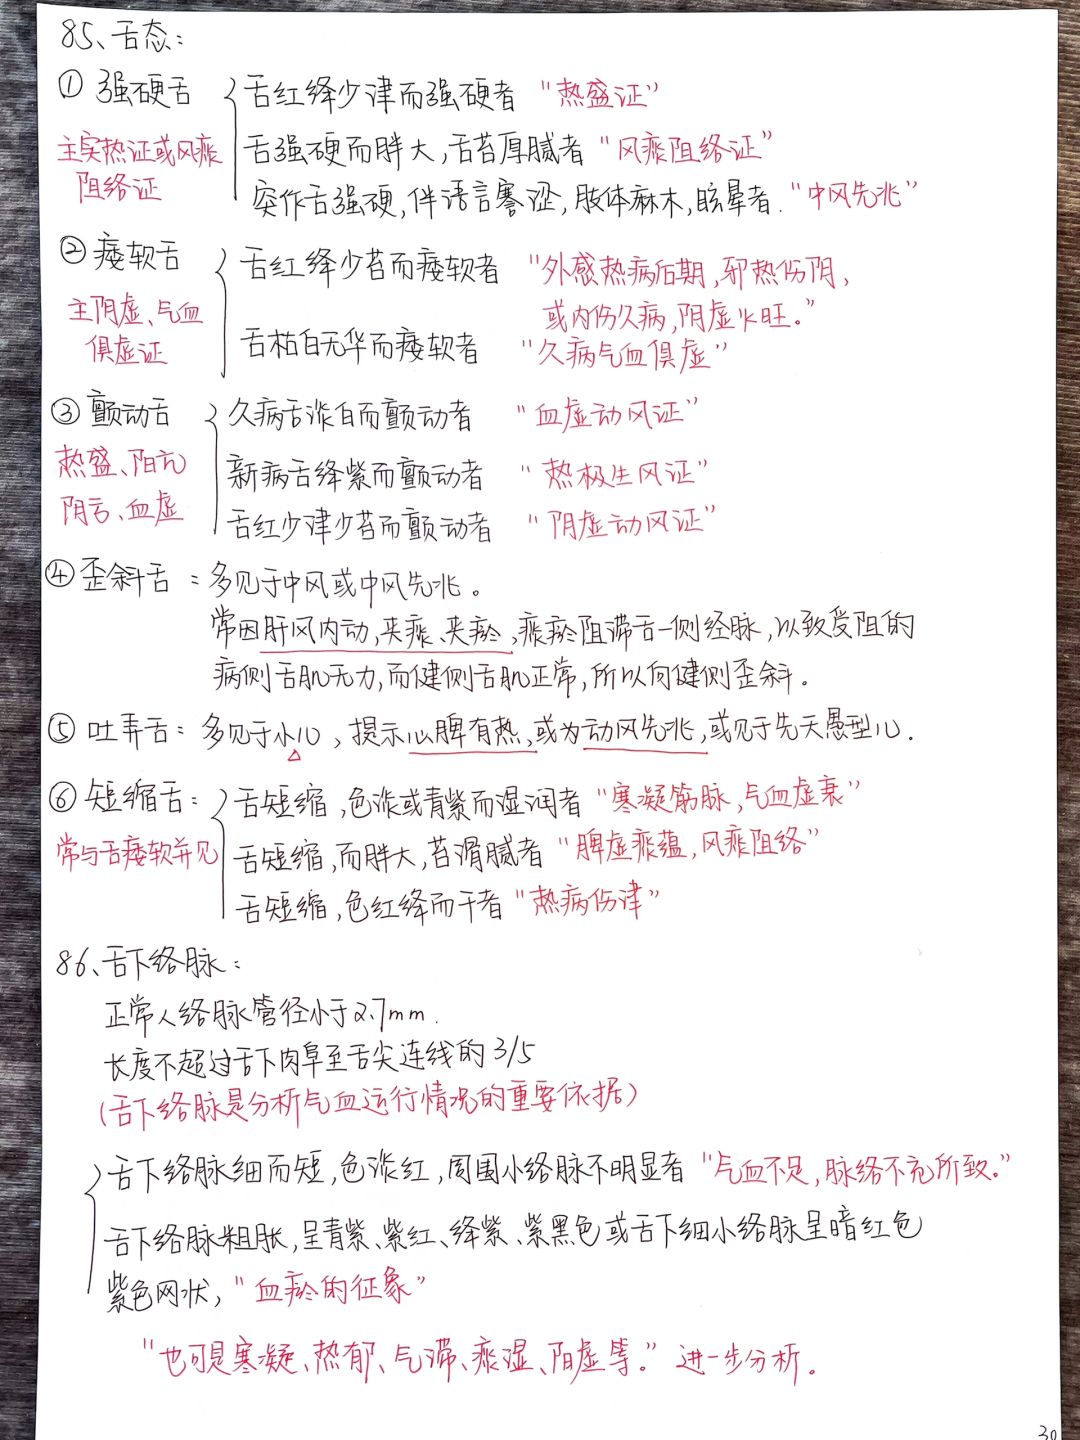 85、舌态：
① 强硬舌
主实热证或风痰
阻络证
舌红绛少津而强硬者 “热盛证”
舌强硬而胖大，舌苔厚腻者 “风痰阻络证”
突作舌强硬，伴语言謇涩，肢体麻木，眩晕者．“中风先兆”
② 痿软舌
主阴虚、气血
俱虚证
舌红绛少苔而痿软者 “外感热病后期，邪热伤阴，
或内伤久病，阴虚火旺。”
舌枯白无华而痿软者 “久病气血俱虚”
③ 颤动舌
热盛、阳亢
阴亏、血虚
久病舌淡白而颤动者 “血虚动风证”
新病舌绛紫而颤动者 “热极生风证”
舌红少津少苔而颤动者 “阴虚动风证”
④ 歪斜舌：多见于中风或中风先兆。
常因肝风内动，夹痰、夹瘀，痰瘀阻滞舌一侧经脉，以致受阻的
病侧舌肌无力，而健侧舌肌正常，所以向健侧歪斜。
⑤ 吐弄舌：多见于小儿，提示心脾有热，或为动风先兆，或见于先天愚型儿．
⑥ 短缩舌：
常与舌痿软并见
舌短缩，色淡或青紫而湿润者 “寒凝筋脉，气血虚衰”
舌短缩，而胖大，苔滑腻者 “脾虚痰蕴，风痰阻络”
舌短缩，色红绛而干者 “热病伤津”
86、舌下络脉：
正常人络脉管径小于2.7mm．
长度不超过舌下肉阜至舌尖连线的3/5
（舌下络脉是分析气血运行情况的重要依据）
舌下络脉细而短，色淡红，周围小络脉不明显者 “气血不足，脉络不充所致。”
舌下络脉粗胀，呈青紫、紫红、绛紫、紫黑色或舌下细小络脉呈暗红色
紫色网状，“血瘀的征象”
“也可是寒凝、热郁、气滞、痰湿、阳虚等。” 进一步分析。
30